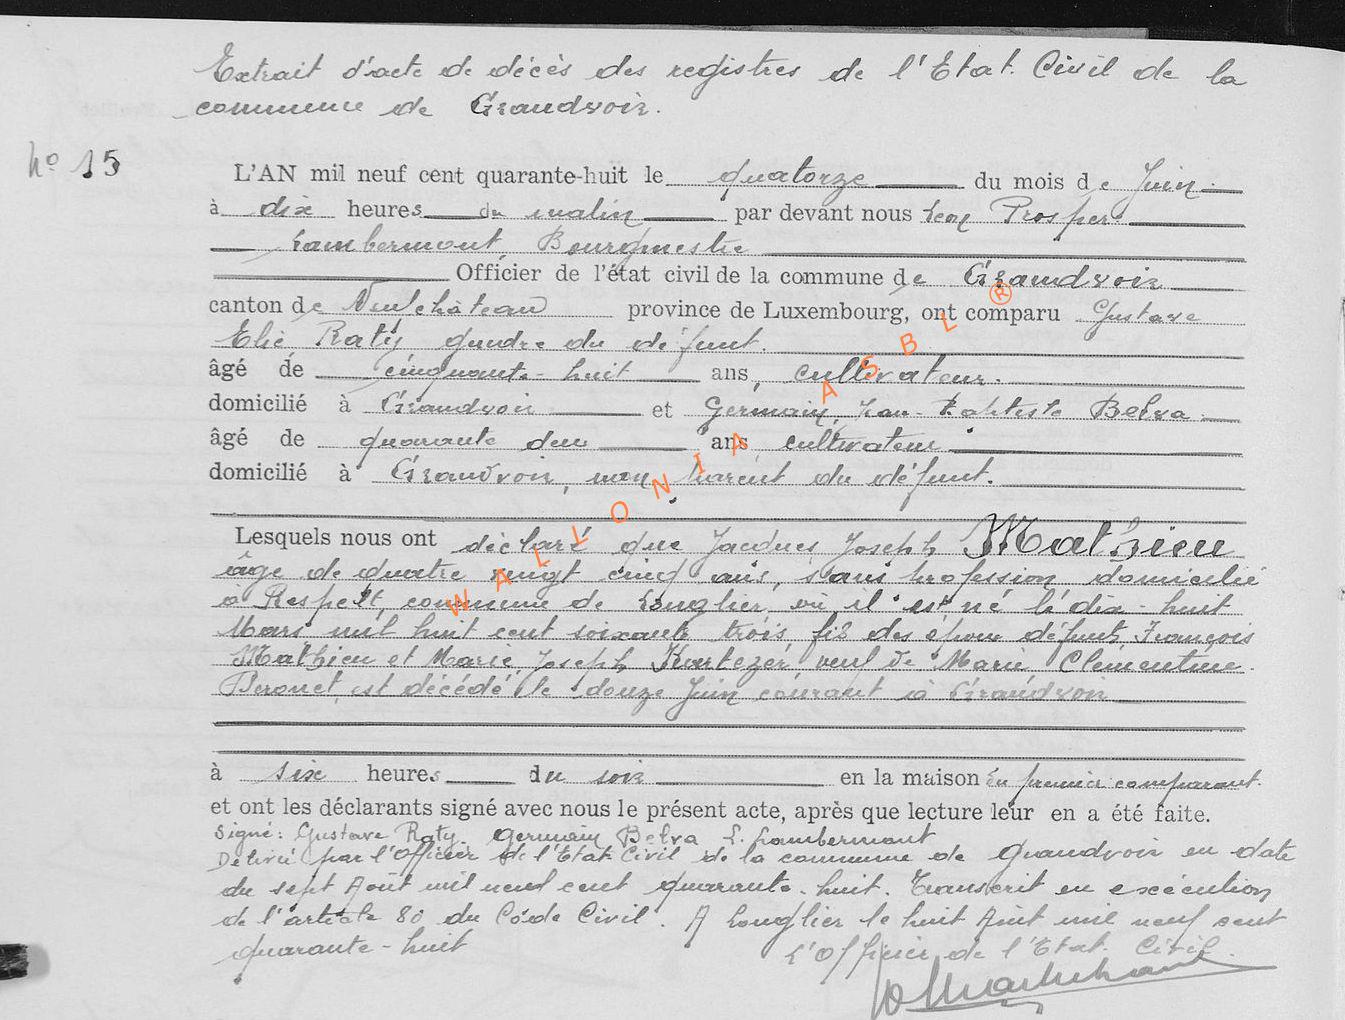 Extrait d'acte de décès des registres de l'Etat Civil de la
commune de Grandvoir.
No 15
L'AN mil neuf cent quarante-huit le quatorze du mois de Juin
à dix heures du matin par devant nous Leon Prosper
Lambermont, Bourgmestre
Officier de l'état civil de la commune de Grandvoir
canton de Neufchâteau province de Luxembourg, ont comparu Gustave
Elie Raty gendre du défunt.
âgé de cinquante-huit ans, cultivateur.
domicilié à Grandvoir et Germain, Jean-Baptiste Belva
âgé de quarante deux ans, cultivateur
domicilié à Grandvoir, non parent du défunt.
Lesquels nous ont déclaré que Jacques Joseph Mathieu
âge de quatre vingt cinq ans, sans profession domicilié
à Respelt, commune de Longlier, où il est né le dix-huit
Mars mil huit cent soixante trois fils des époux défunts François
Mathieu et Marie Joseph veuf de Marie Clémentine
est décédé le douze Juin courant à Grandvoir
à six heures du soir en la maison du premier comparant.
et ont les déclarants signé avec nous le présent acte, après que lecture leur en a été faite.
Signé: Gustave Raty, Germain Belva L. Lambermont
Délivré par l'Officier de l'Etat Civil de la commune de Grandvoir en date
du sept Août mil neuf cent quarante-huit. Transcrit en exécution
de l'article 80 du Code Civil. A Longlier le huit Août mil neuf cent
quarante-huit
L'Officier de l'Etat Civil.
WALLONIA ASBL ®